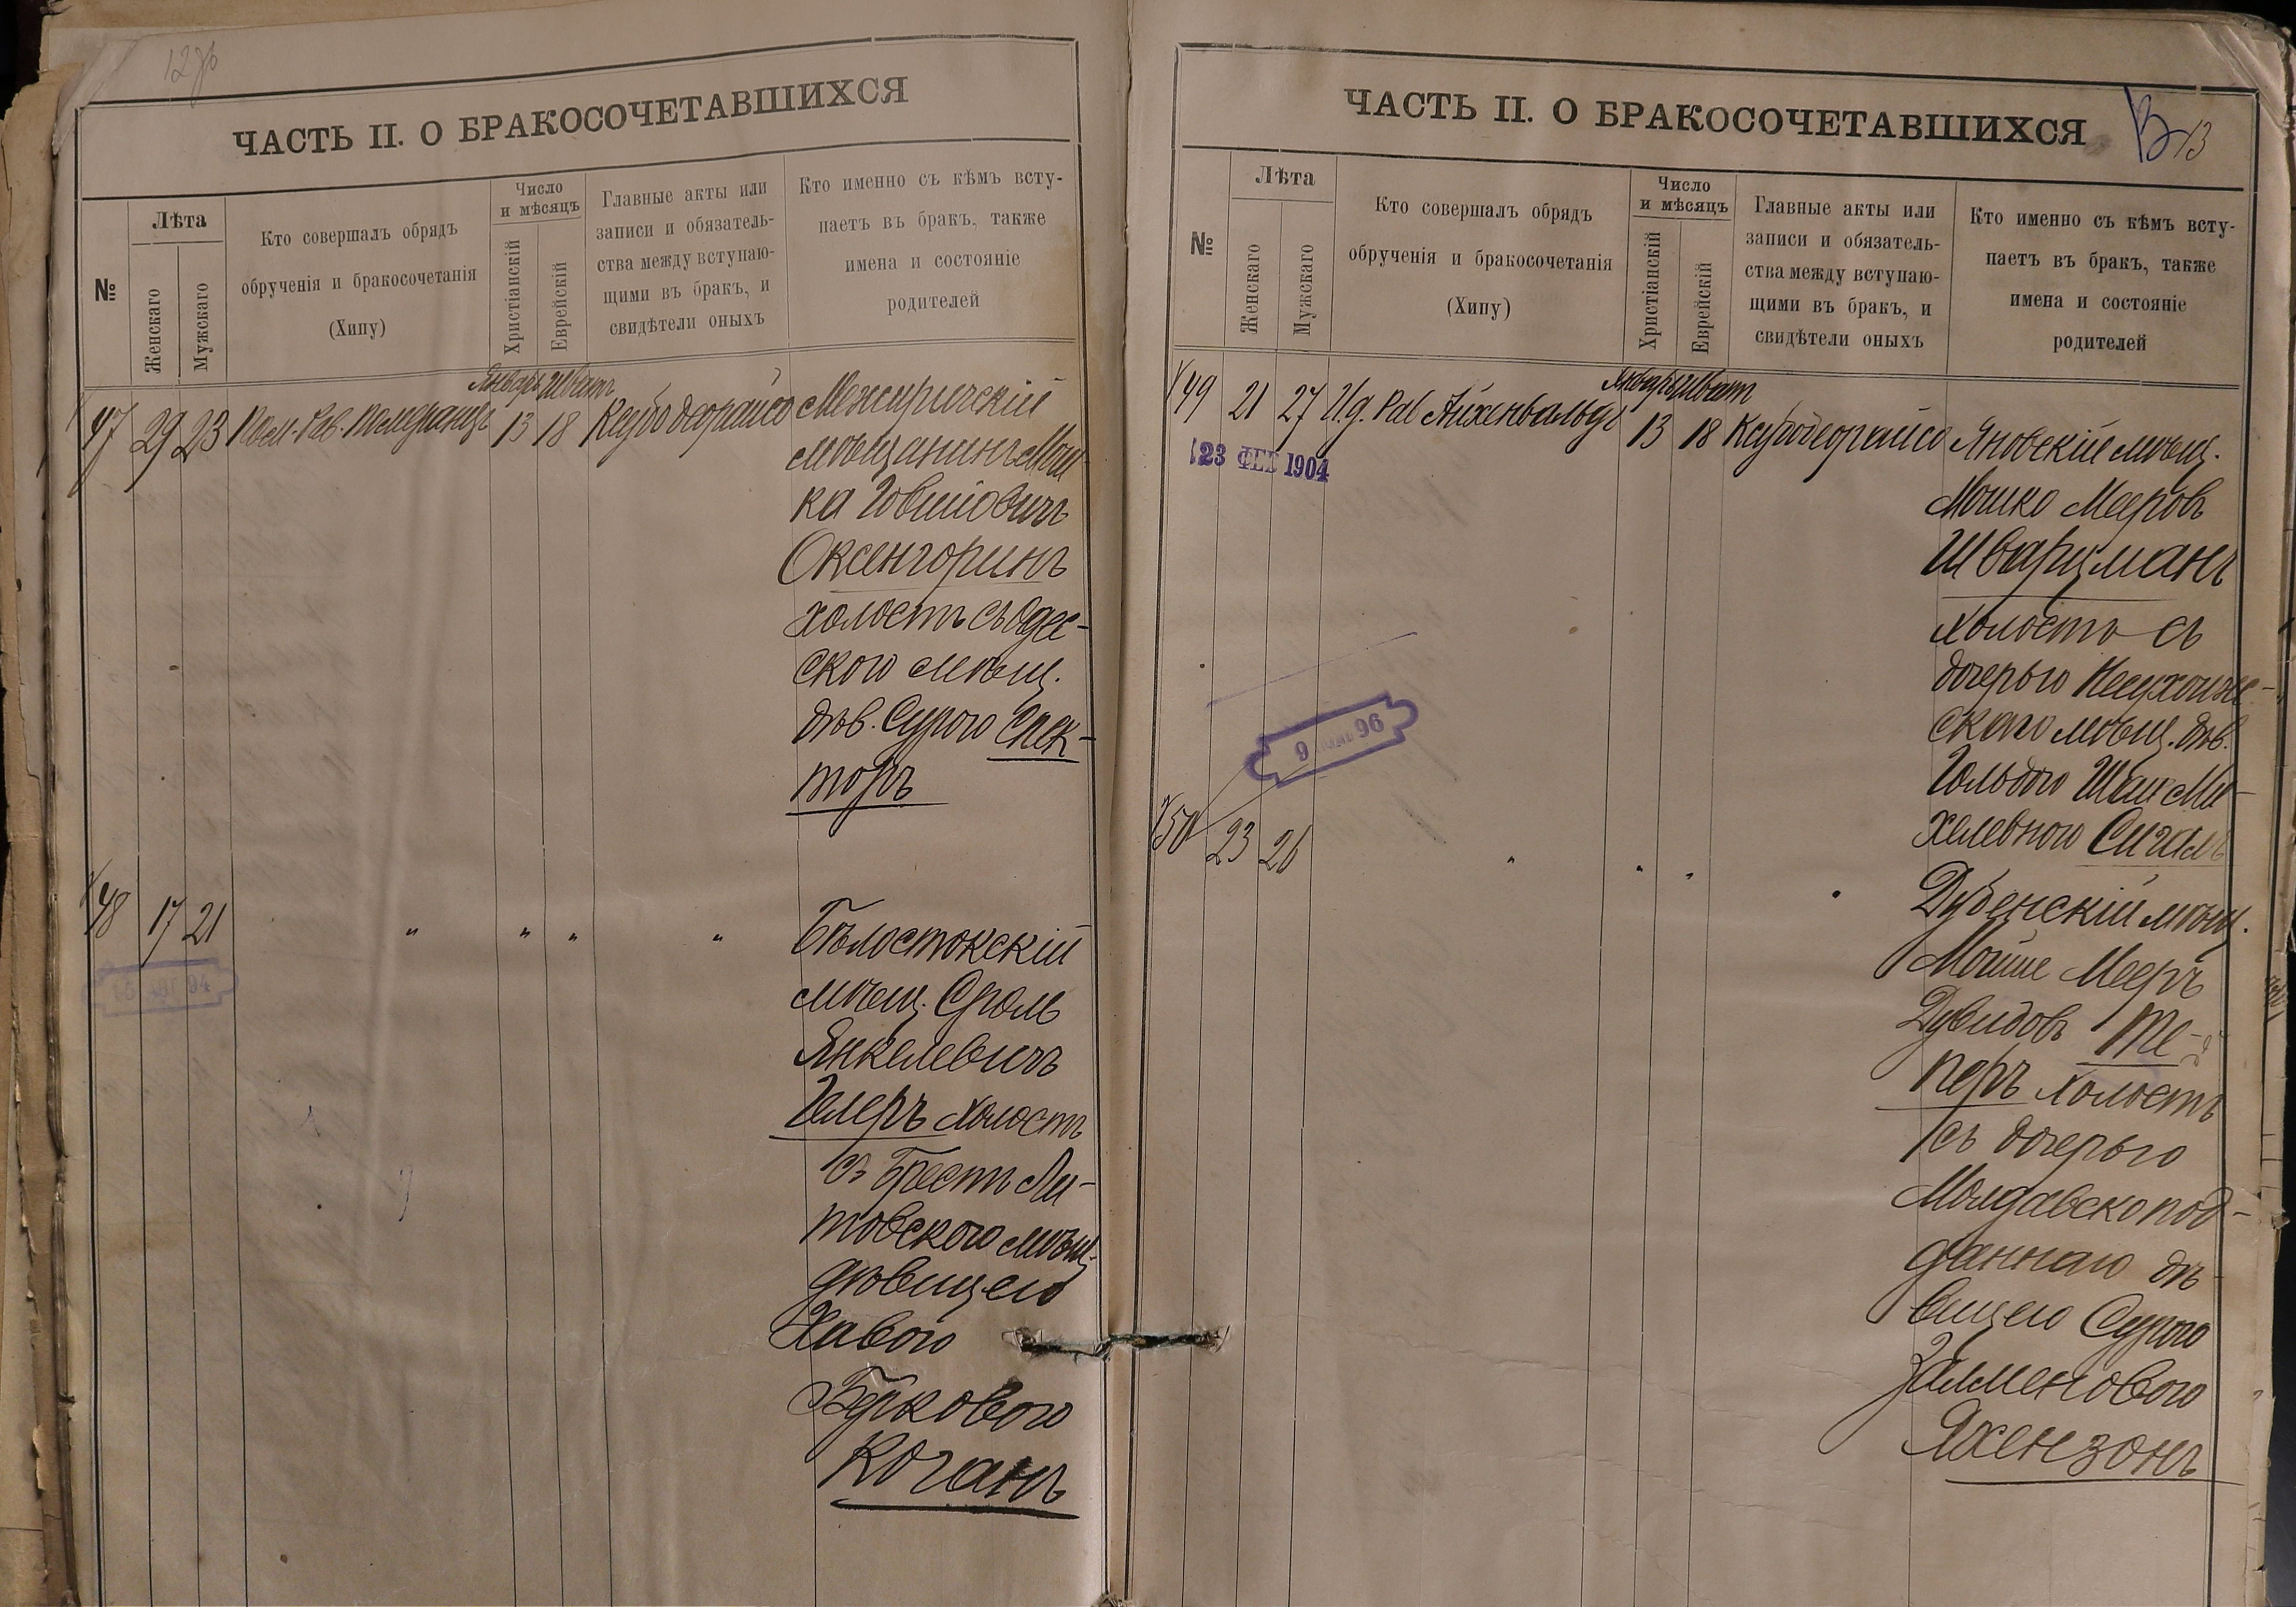 ЧАСТЬ II. О БРАКОСОЧЕТАВШИХСЯ
№
Лѣта
Женскаго
Мужскаго
Кто совершалъ обрядъ
обрученія и бракосочетанія
(Хипу)
Число
и мѣсяцъ
Христіанскій
Еврейскій
Главные акты или
записи и обязатель-
ства между вступаю-
щими въ бракъ, и
свидѣтели оныхъ
Кто именно съ кѣмъ всту-
паетъ въ бракъ, также
имена и состояніе
родителей
Январь Шватъ
47 29 23 Пом. Рав. Померанцъ 13 18 Ксубо деорайсо Межиричскій
мѣщанинъ Мош-
ка Іовшіовичъ
Оксенгоринъ
холостъ съ Одес-
скою мѣщ.
дѣв. Сурою Спек-
торъ
48 17 21 " " " " Бѣлостокскій
мѣщ. Сроль
Янкелевичъ
Гелеръ холостъ
съ Брестъ Ли-
товскою мѣщ.
дѣвицею
Хавою
Берковою
Коганъ
ЧАСТЬ II. О БРАКОСОЧЕТАВШИХСЯ
13
№
Лѣта
Женскаго
Мужскаго
Кто совершалъ обрядъ
обрученія и бракосочетанія
(Хипу)
Число
и мѣсяцъ
Христіанскій
Еврейскій
Главные акты или
записи и обязатель-
ства между вступаю-
щими въ бракъ, и
свидѣтели оныхъ
Кто именно съ кѣмъ всту-
паетъ въ бракъ, также
имена и состояніе
родителей
Январь Шватъ
49 21 27 И.д. Рав Айхенвальдъ 13 18 Ксубо деорайсо Яновскій мѣщ.
23 ФЕВ 1904
Мошко Мееровъ
Шварцманъ
холостъ съ
дочерью Несухоиже-
скаго мѣщ. дѣв.
Гольдою
хелевною Сигаль
9 96
50 23 26 " " " " Дубенскій мѣщ.
Мойше Мееръ
Дувидовъ Те-
перъ холостъ
съ дочерью
Молдавскопод-
даннаго дѣ-
вицею Сурою
Залменовою
Яхензонъ